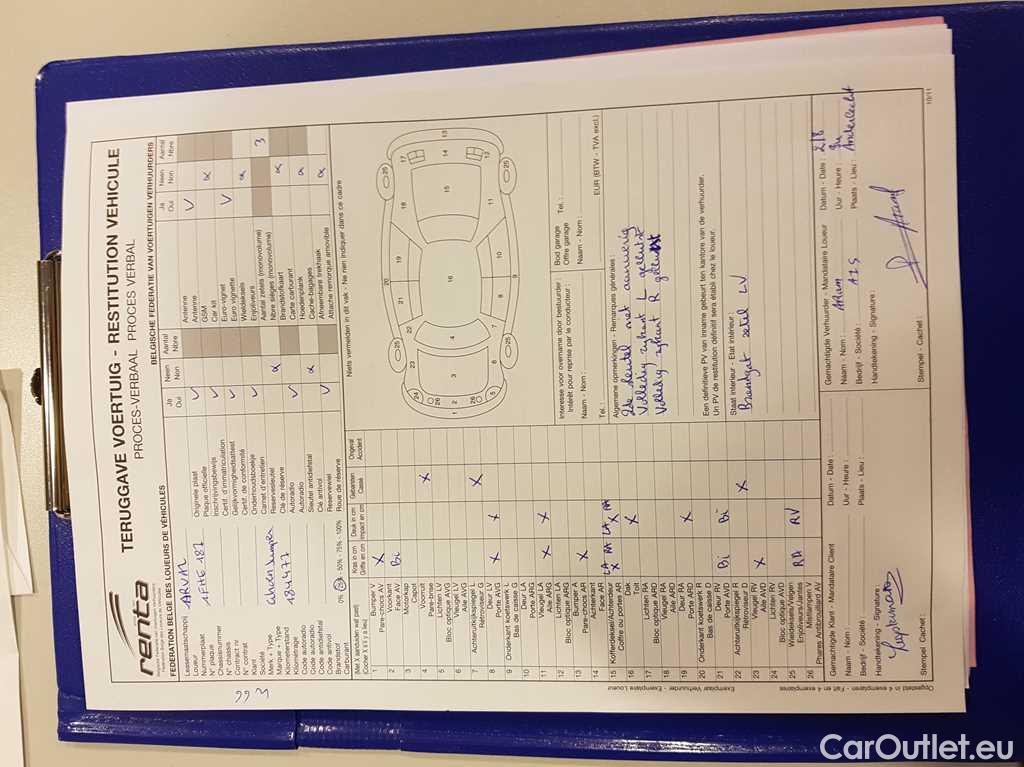 renta
TERUGGAVE VOERTUIG - RESTITUTION VEHICULE
PROCES-VERBAAL PROCES VERBAL
FEDERATION BELGE DES LOUEURS DE VÉHICULES
BELGISCHE FEDERATIE VAN VOERTUIGEN VERHUURDERS
Leasemaatschappij ARVAL
Loueur
Nummerplaat 1FHE 187
N° plaque
Chassisnummer
N° chassis
Contract nr
N° contrat
Klant
Société
Merk + Type
Marque + Type
Kilometerstand 184477
Kilométrage
Code autoradio
Code autoradio
Code antidiefstal
Code antivol
Brandstof 0% - 25% - 50% - 75% - 100%
Carburant
Ja Neen Aantal
Oui Non Nbre
Originele plaat
Plaque officielle
Inschrijvingsbewijs
Certif. d'immatriculation
Gelijkvormigheidsattest
Certif. de conformité
Onderhoudsboekje
Carnet d'entretien
Reservesleutel
Clé de réserve
Autoradio
Autoradio
Sleutel antidiefstal
Clé antivol
Reservewiel
Roue de réserve
Ja Neen Aantal
Oui Non Nbre
Antenne
Antenne
GSM
Car kit
Euro-vignet
Euro vignette
Wieldeksels
Enjoliveurs
Aantal zetels (monovolume) 3
Nbre sièges (monovolume)
Brandstofkaart
Carte carburant
Hoedenplank
Cache-bagages
Afneembare trekhaak
Attache remorque amovible
(Met X aanduiden wat past)
(Cocher X s'il y a lieu)
Kras in cm Deuk in cm Gebarsten Ongeval
Griffe en cm Impact en cm Cassé Accident
1 Bumper V X
Pare-chocs AV
2 Voorkant Bi
Face AV
3 Motorkap
Capot
4 Voorruit X
Pare-brise
5 Lichten LV
Bloc optique AVG
6 Vleugel LV
Aile AVG
7 Achteruitkijkspiegel L X
Rétroviseur G
8 Deur LV X X
Porte AVG
9 Onderkant koetswerk L
Bas de caisse G
10 Deur LA
Porte ARG
11 Vleugel LA X X
Aile ARG
12 Lichten LA
Bloc optique ARG
13 Bumper A X
Pare-chocs AR
14 Achterkant
Face AR
15 Kofferdeksel/Achterdeur X X
Coffre ou portes AR
16 Dak X
Toit
17 Lichten RA
Bloc optique ARD
18 Vleugel RA
Aile ARD
19 Deur RA X X
Porte ARD
20 Onderkant koetswerk R
Bas de caisse D
21 Deur RV Bi Bi
Porte AVD
22 Achteruitkijkspiegel R X
Rétroviseur D
23 Vleugel RV X
Aile AVD
24 Lichten RV
Bloc optique AVD
25 Wieldeksels/Velgen RA RV
Enjoliveurs/Jantes
26 Mistlampen V
Phares Antibrouillard AV
Niets vermelden in dit vak - Ne rien indiquer dans ce cadre
Interesse voor overname door bestuurder :
Intérêt pour reprise par le conducteur :
Naam - Nom :
Tel. :
Bod garage
Offre garage
Tel. :
Naam - Nom :
EUR (BTW - TVA excl.)
Algemene opmerkingen - Remarques générales :
2de sleutel met aanwezig
Volledig zijkant L gellutst
Volledig zijkant R gellutst
Een definitieve PV van inname gebeurt ten kantore van de verhuurder.
Un PV de restitution définitif sera établi chez le loueur.
Staat interieur - Etat intérieur :
Brandgat zetel LV
Gemachtigde Klant - Mandataire Client
Datum - Date :
Naam - Nom :
Uur - Heure :
Bedrijf - Société :
Plaats - Lieu :
Handtekening - Signature :
Stempel - Cachet :
Gemachtigde Verhuurder - Mandataire Loueur
Datum - Date : 2/8
Naam - Nom :
Uur - Heure : 9u
Bedrijf - Société : AIS
Plaats - Lieu : Anderlecht
Handtekening - Signature :
Stempel - Cachet :
Opgesteld in 4 exemplaren - Fait en 4 exemplaires
Exemplaar Verhuurder - Exemplaire Loueur
10/11
CarOutlet.eu